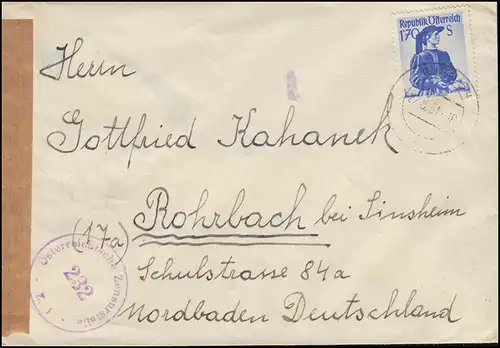 Republik Österreich
170 S
Herrn
Gottfried Kahanek
(17a) Rohrbach bei Sinsheim
Schulstrasse 84a
Nordbaden Deutschland
Österreichische Zensurstelle
232